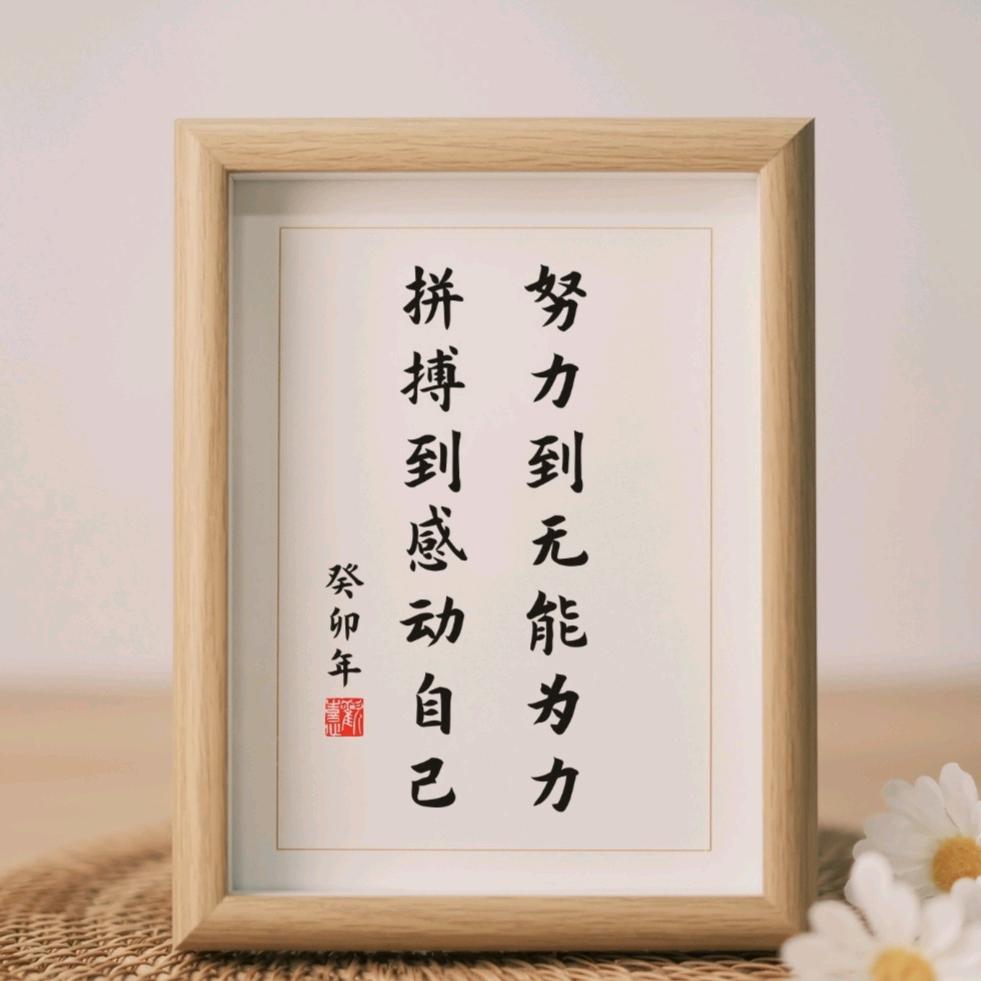 努力到无能为力
拼搏到感动自己
癸卯年
歡喜